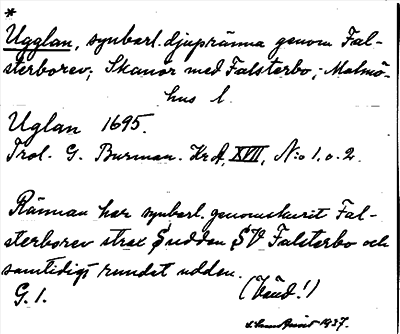 *
Ugglan, synbarl. djupränna genom Fal-
sterborev; Skanör med Falsterbo; Malmö-
hus l.
Uglan 1695.
Trol. G. Burman. KrA, XVIII, N:o 1. o. 2.
Rännan har synbarl. genomskurit Fal-
sterborev strax S udden SV Falsterbo och
samtidigt rundat udden.
G. 1. (Vänd!)
1937.